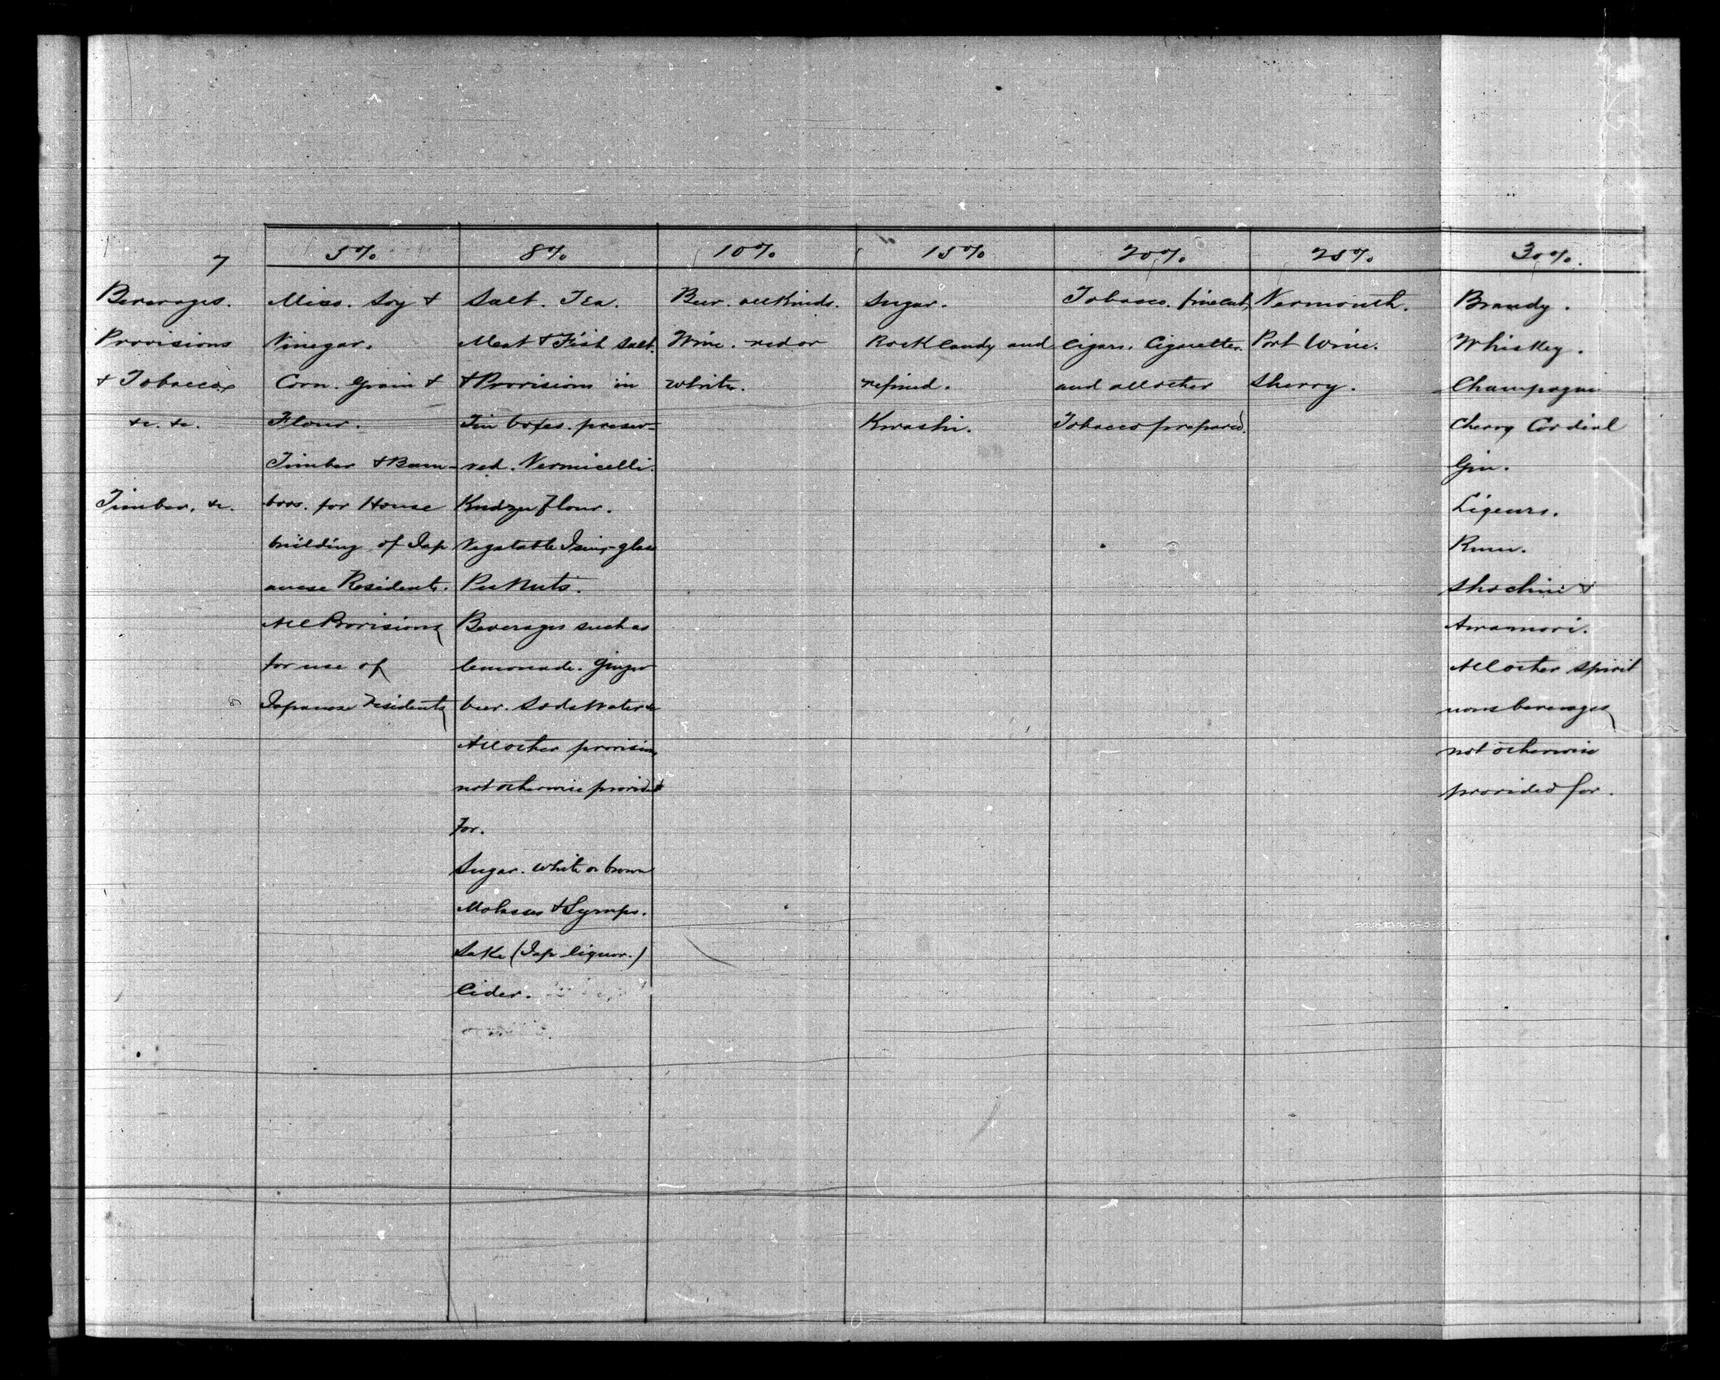 7
Beverages.
Provisions
& Tobaccos
&c. &c.
Timber. &c.
5%
Miso. Soy &
Vinegar.
Corn. Grain &
Flour.
Timber & Bam-
boos. for House
building of Jap
anese Residents.
All Provisions
for use of
Japanese residents
8%
Salt. Tea.
Meat & Fish salt.
& Provisions in
Tin boxes. preser-
ved. Vermicelli.
Kudzu flour.
Vegatable Ising-glass
Pea Nuts.
Beverages such as
lemonade. Ginger
beer. Soda Water &c
All other provisions
not otherwise provided
for.
Sugar. white or brown
Molasses & Syrups.
Sake (Jap liquor.)
Cider.
10%
Beer. all kinds.
Wine. red or
white.
15%
Sugar.
Rock Candy and
refined.
Kwashi.
20%
Tobacco. fine cut,
Cigars. Cigarettes.
and all other
Tobacco prepared.
25%
Vermouth.
Port Wine.
Sherry.
30%.
Brandy.
Whiskey.
Champagne
Cherry Cordial
Gin.
Liqeurs.
Rum.
Shochiu &
Awamori.
All other spirit
uous beverages
not otherwise
provided for.